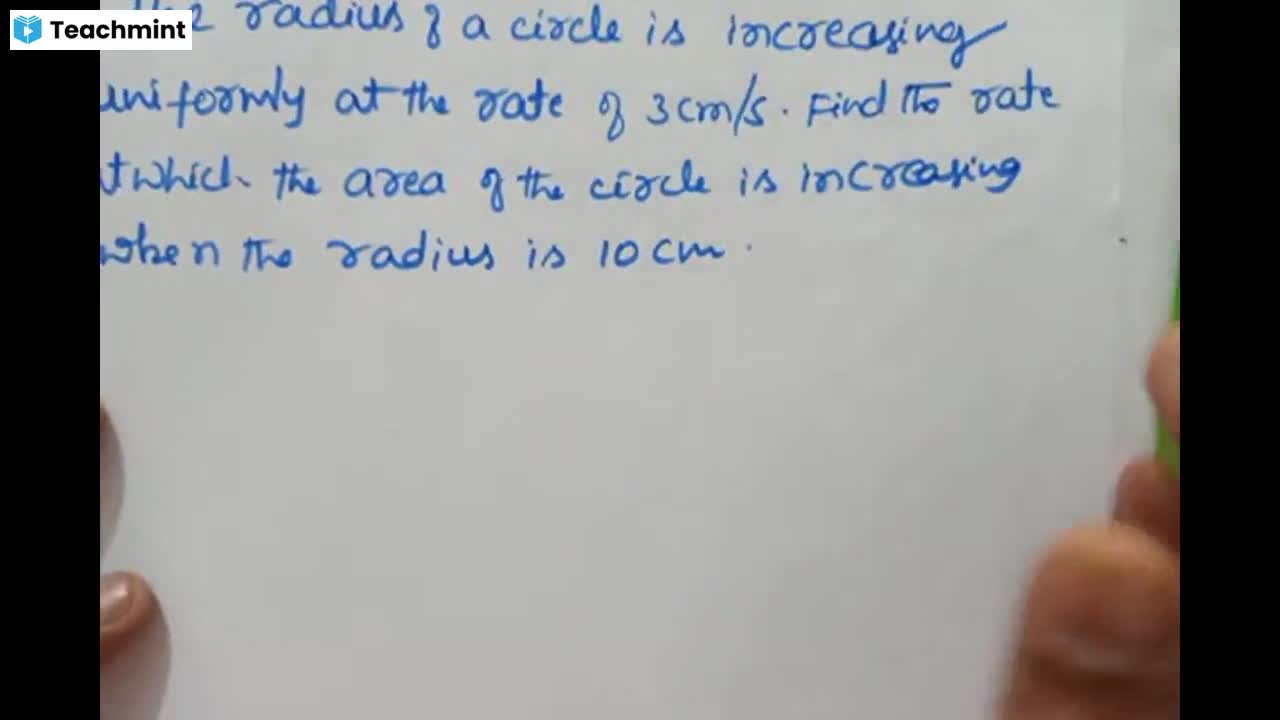 Teachmint
radius of a circle is increasing
uniformly at the rate of 3cm/s. Find the rate
which the area of the circle is increasing
when the radius is 10 cm.